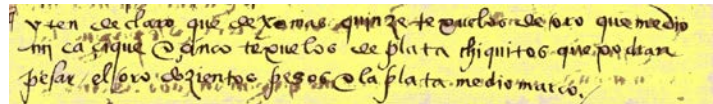 yten declaro que dexo mas quinze texuelos de oro que me dio
mi caçique & cinco texuelos de plata chiquitos que podran
pesar el oro dozientos pesos & la plata medio marco.